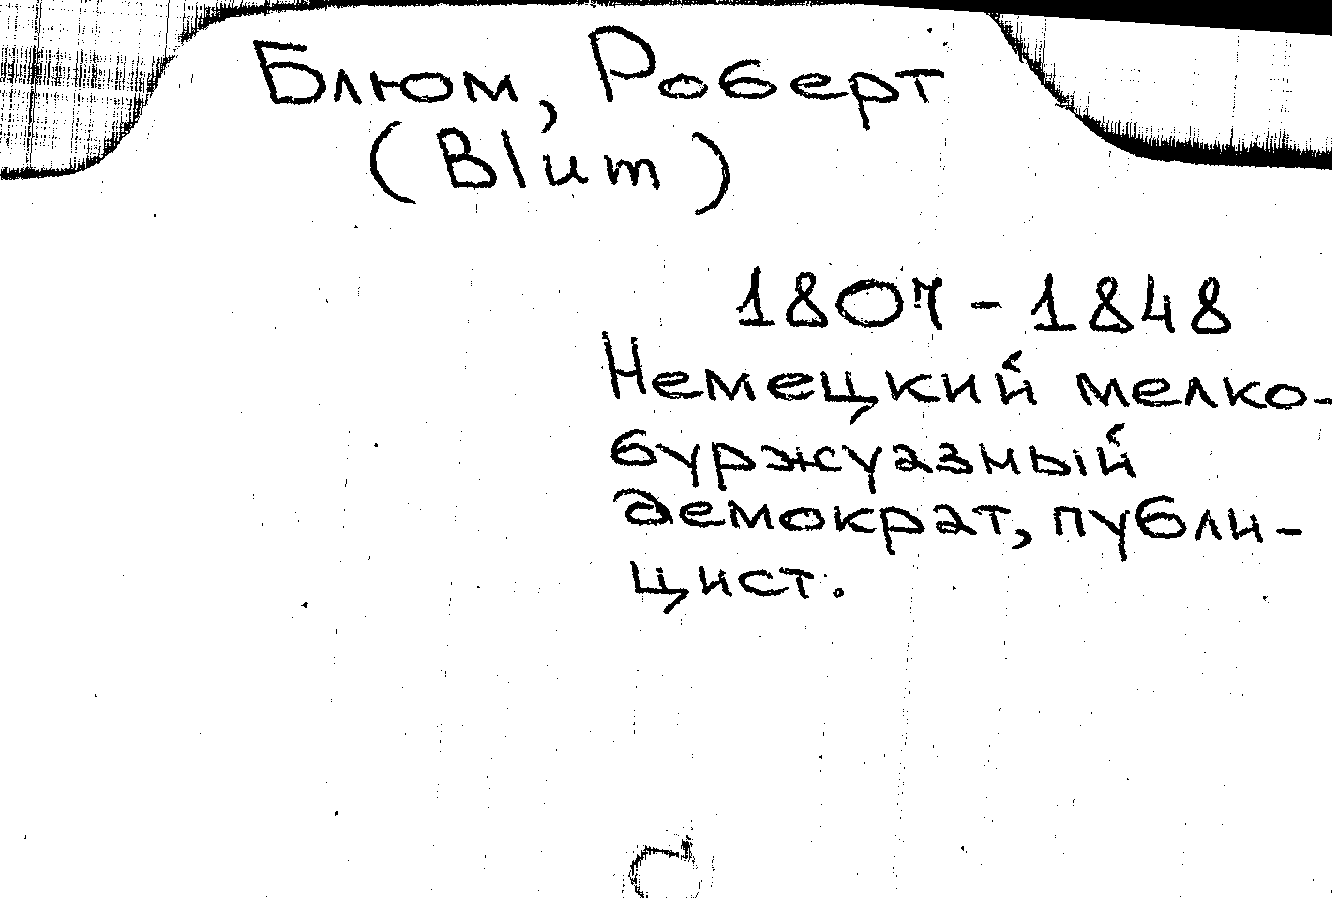 Блюм, Роберт
(Blum)
1807-1848
Немецкий мелко-
буржуазный
демократ, публи-
цист.